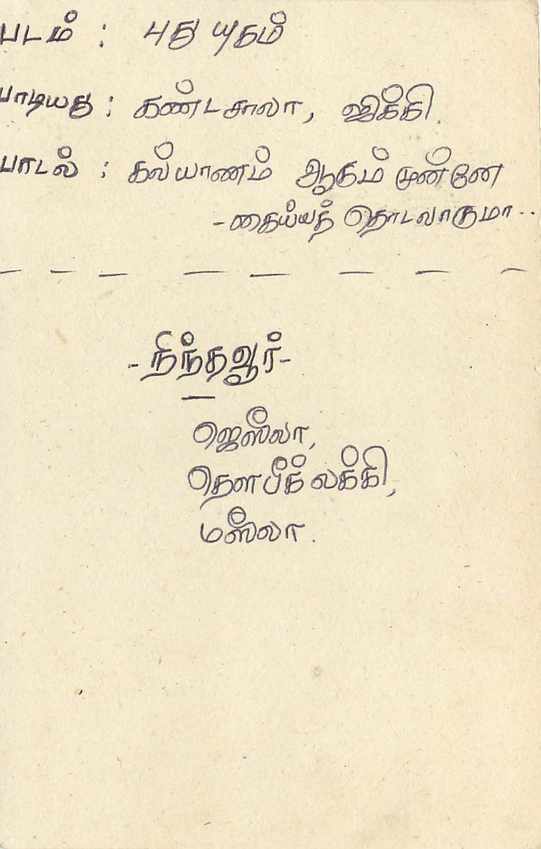 படம் : புது யுகம்
பாடியது : கண்டசாலா, ஜிக்கி.
பாடல் : கல்யாணம் ஆகும் முன்னே
- கைய்யத் தொடலாகுமா..
- நிந்தவூர் -
ஜெஸீலா,
தௌபீக் லக்கி,
மஸீலா.